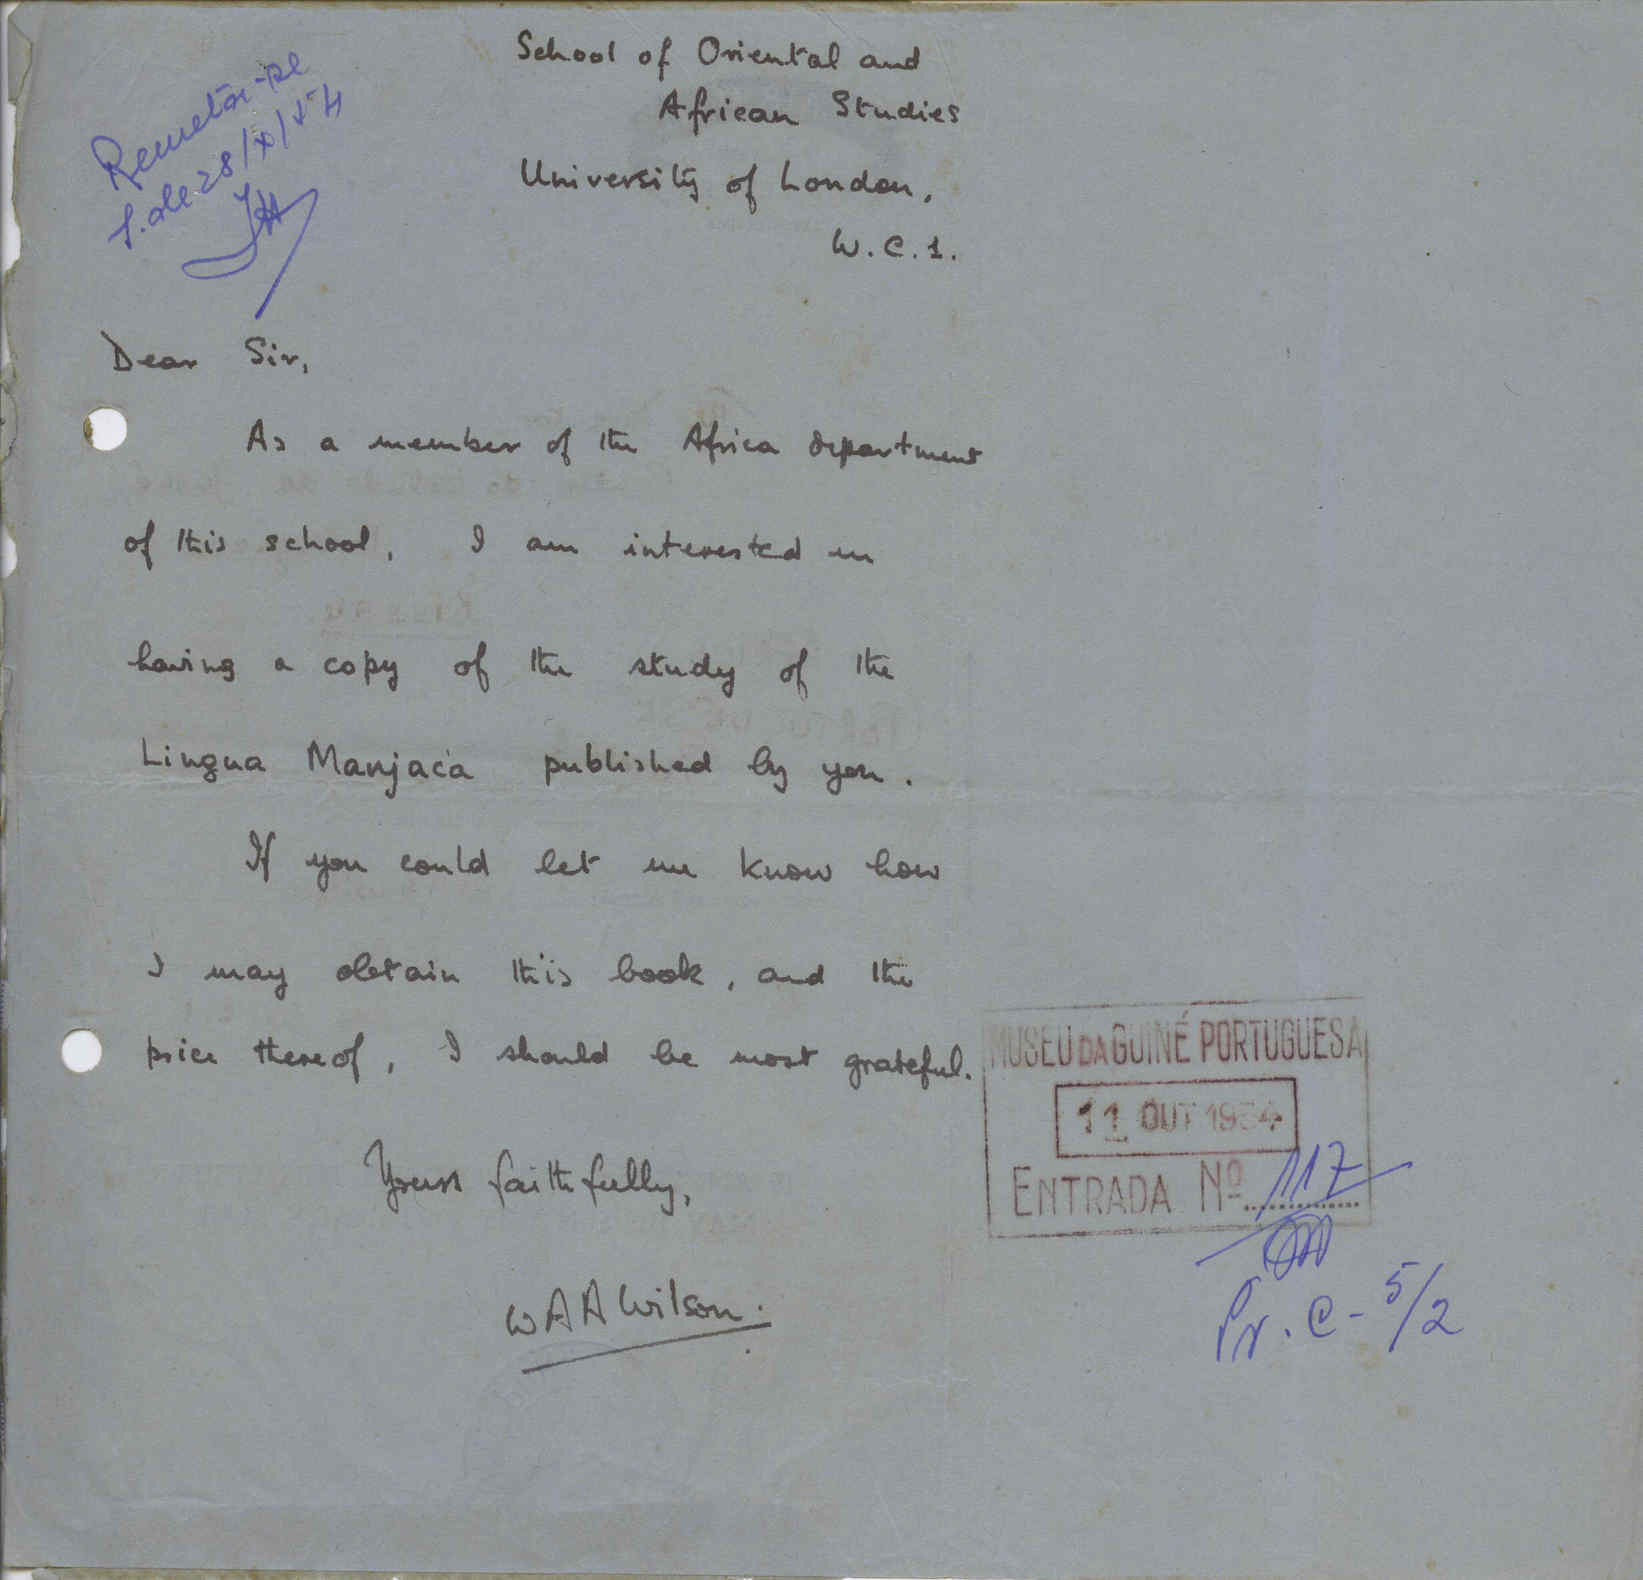 School of Oriental and
African Studies
University of London,
W.C.1.
28/X/54
Dear Sir,
As a member of the Africa department
of this school, I am interested in
having a copy of the study of the
Lingua Manjaca published by you.
If you could let me know how
I may obtain this book, and the
price thereof, I should be most grateful.
Yours faithfully,
WAA Wilson.
MUSEU DA GUINÉ PORTUGUESA
11 OUT 1954
ENTRADA Nº 117
Pr. C - 5/2